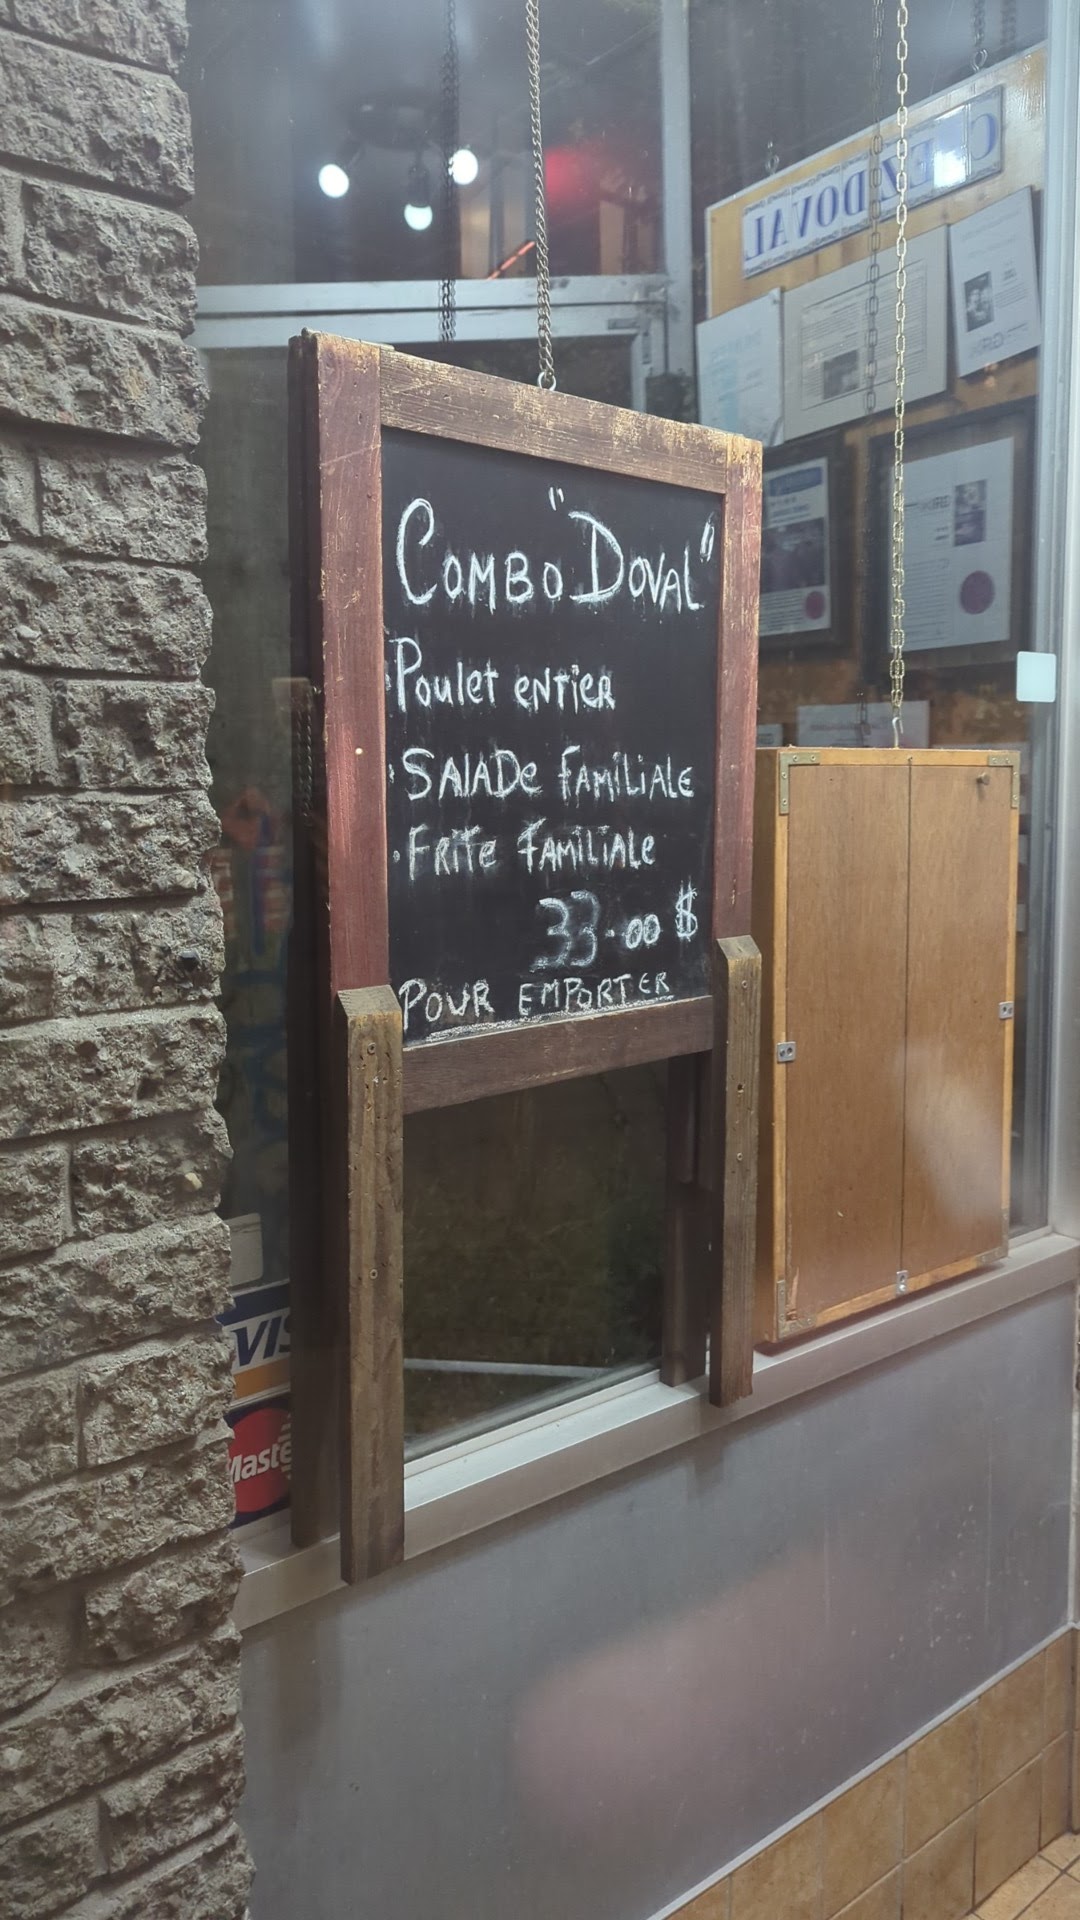 Combo "Doval"
·Poulet entier
·Salade familiale
·Frite familiale
33.00 $
Pour emporter
CHEZ DOVAL
VIS
Maste